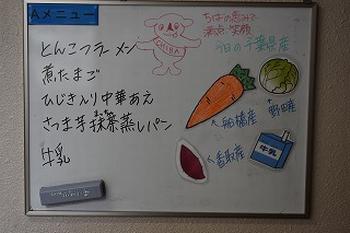 Aメニュー
とんこつラーメン
煮たまご
ひじき入り中華あえ
さつま芋抹茶蒸しパン
牛乳
CHIBA
ちばの恵みで
満点笑顔
今日の千葉県産
船橋産
野田産
香取産
牛乳